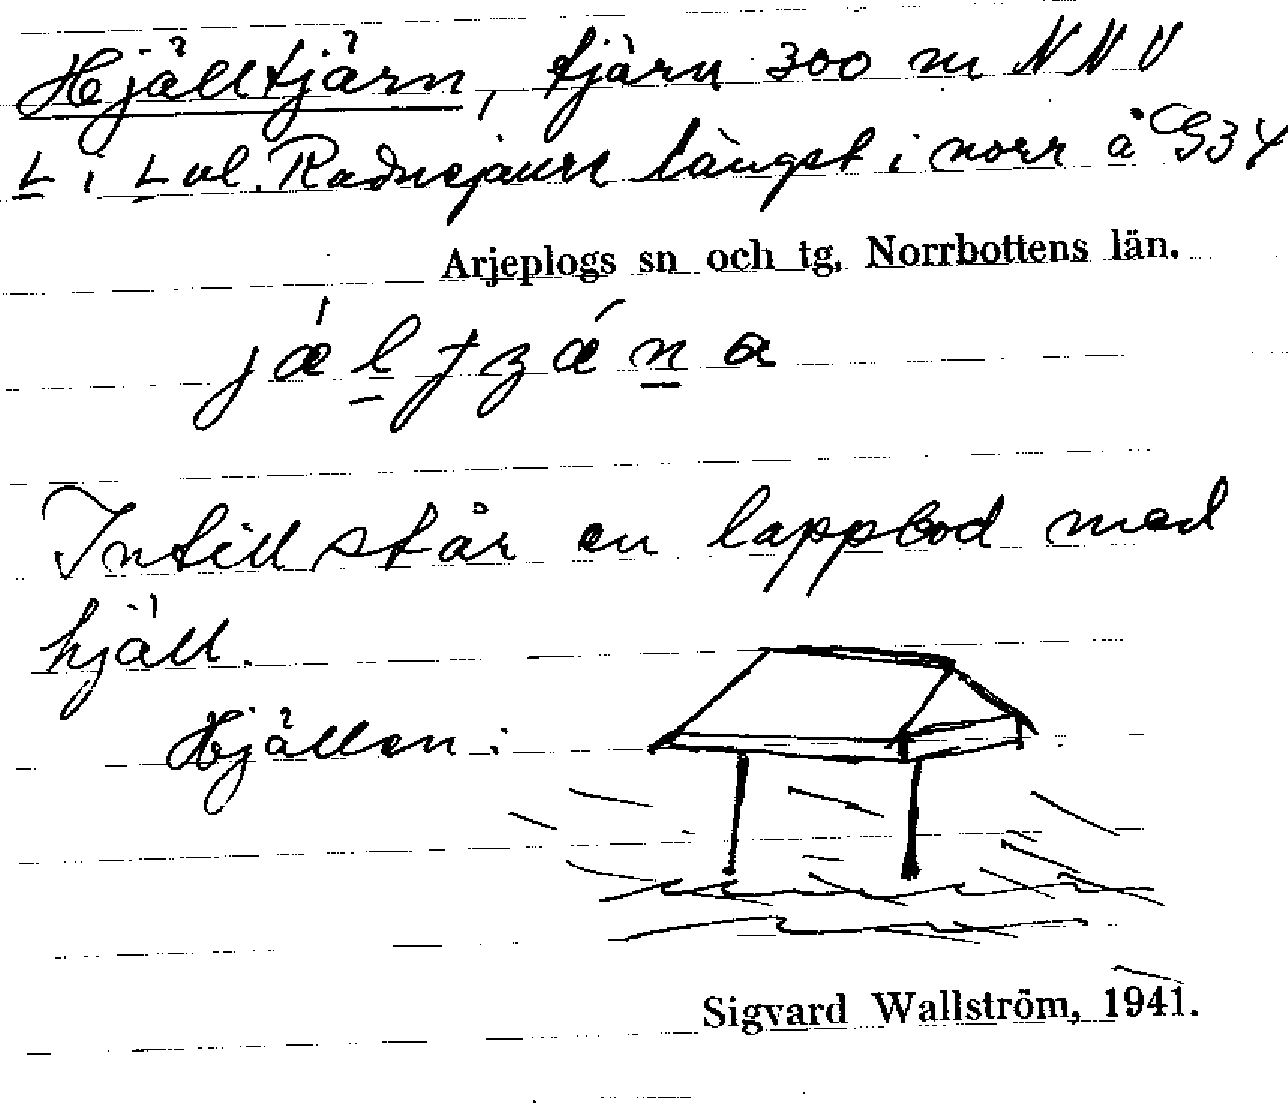 Hjälltjärn, tjärn 300 m NNV
L i L vl. Radnejaure längst i norr å G34
Arjeplogs sn och tg, Norrbottens län.
Intill står en lappbod med
hjäll.
Hjällen:
Sigvard Wallström, 1941.